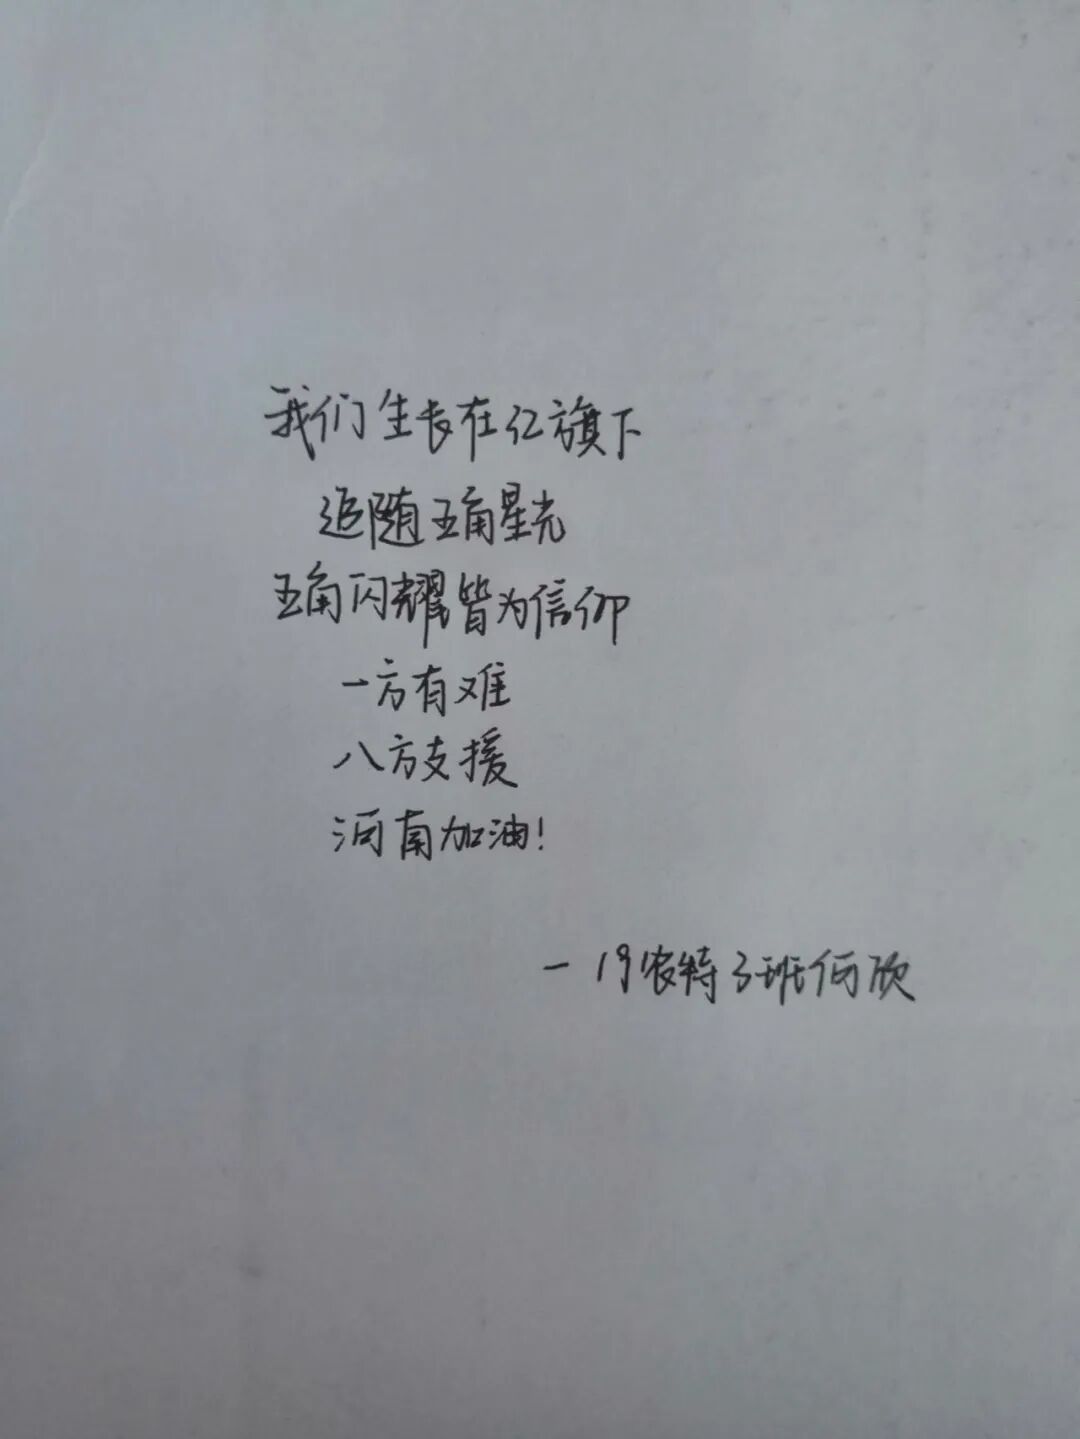 我们生长在红旗下
追随五角星光
五角闪耀皆为信仰
一方有难
八方支援
河南加油!
—19农特3班何欣